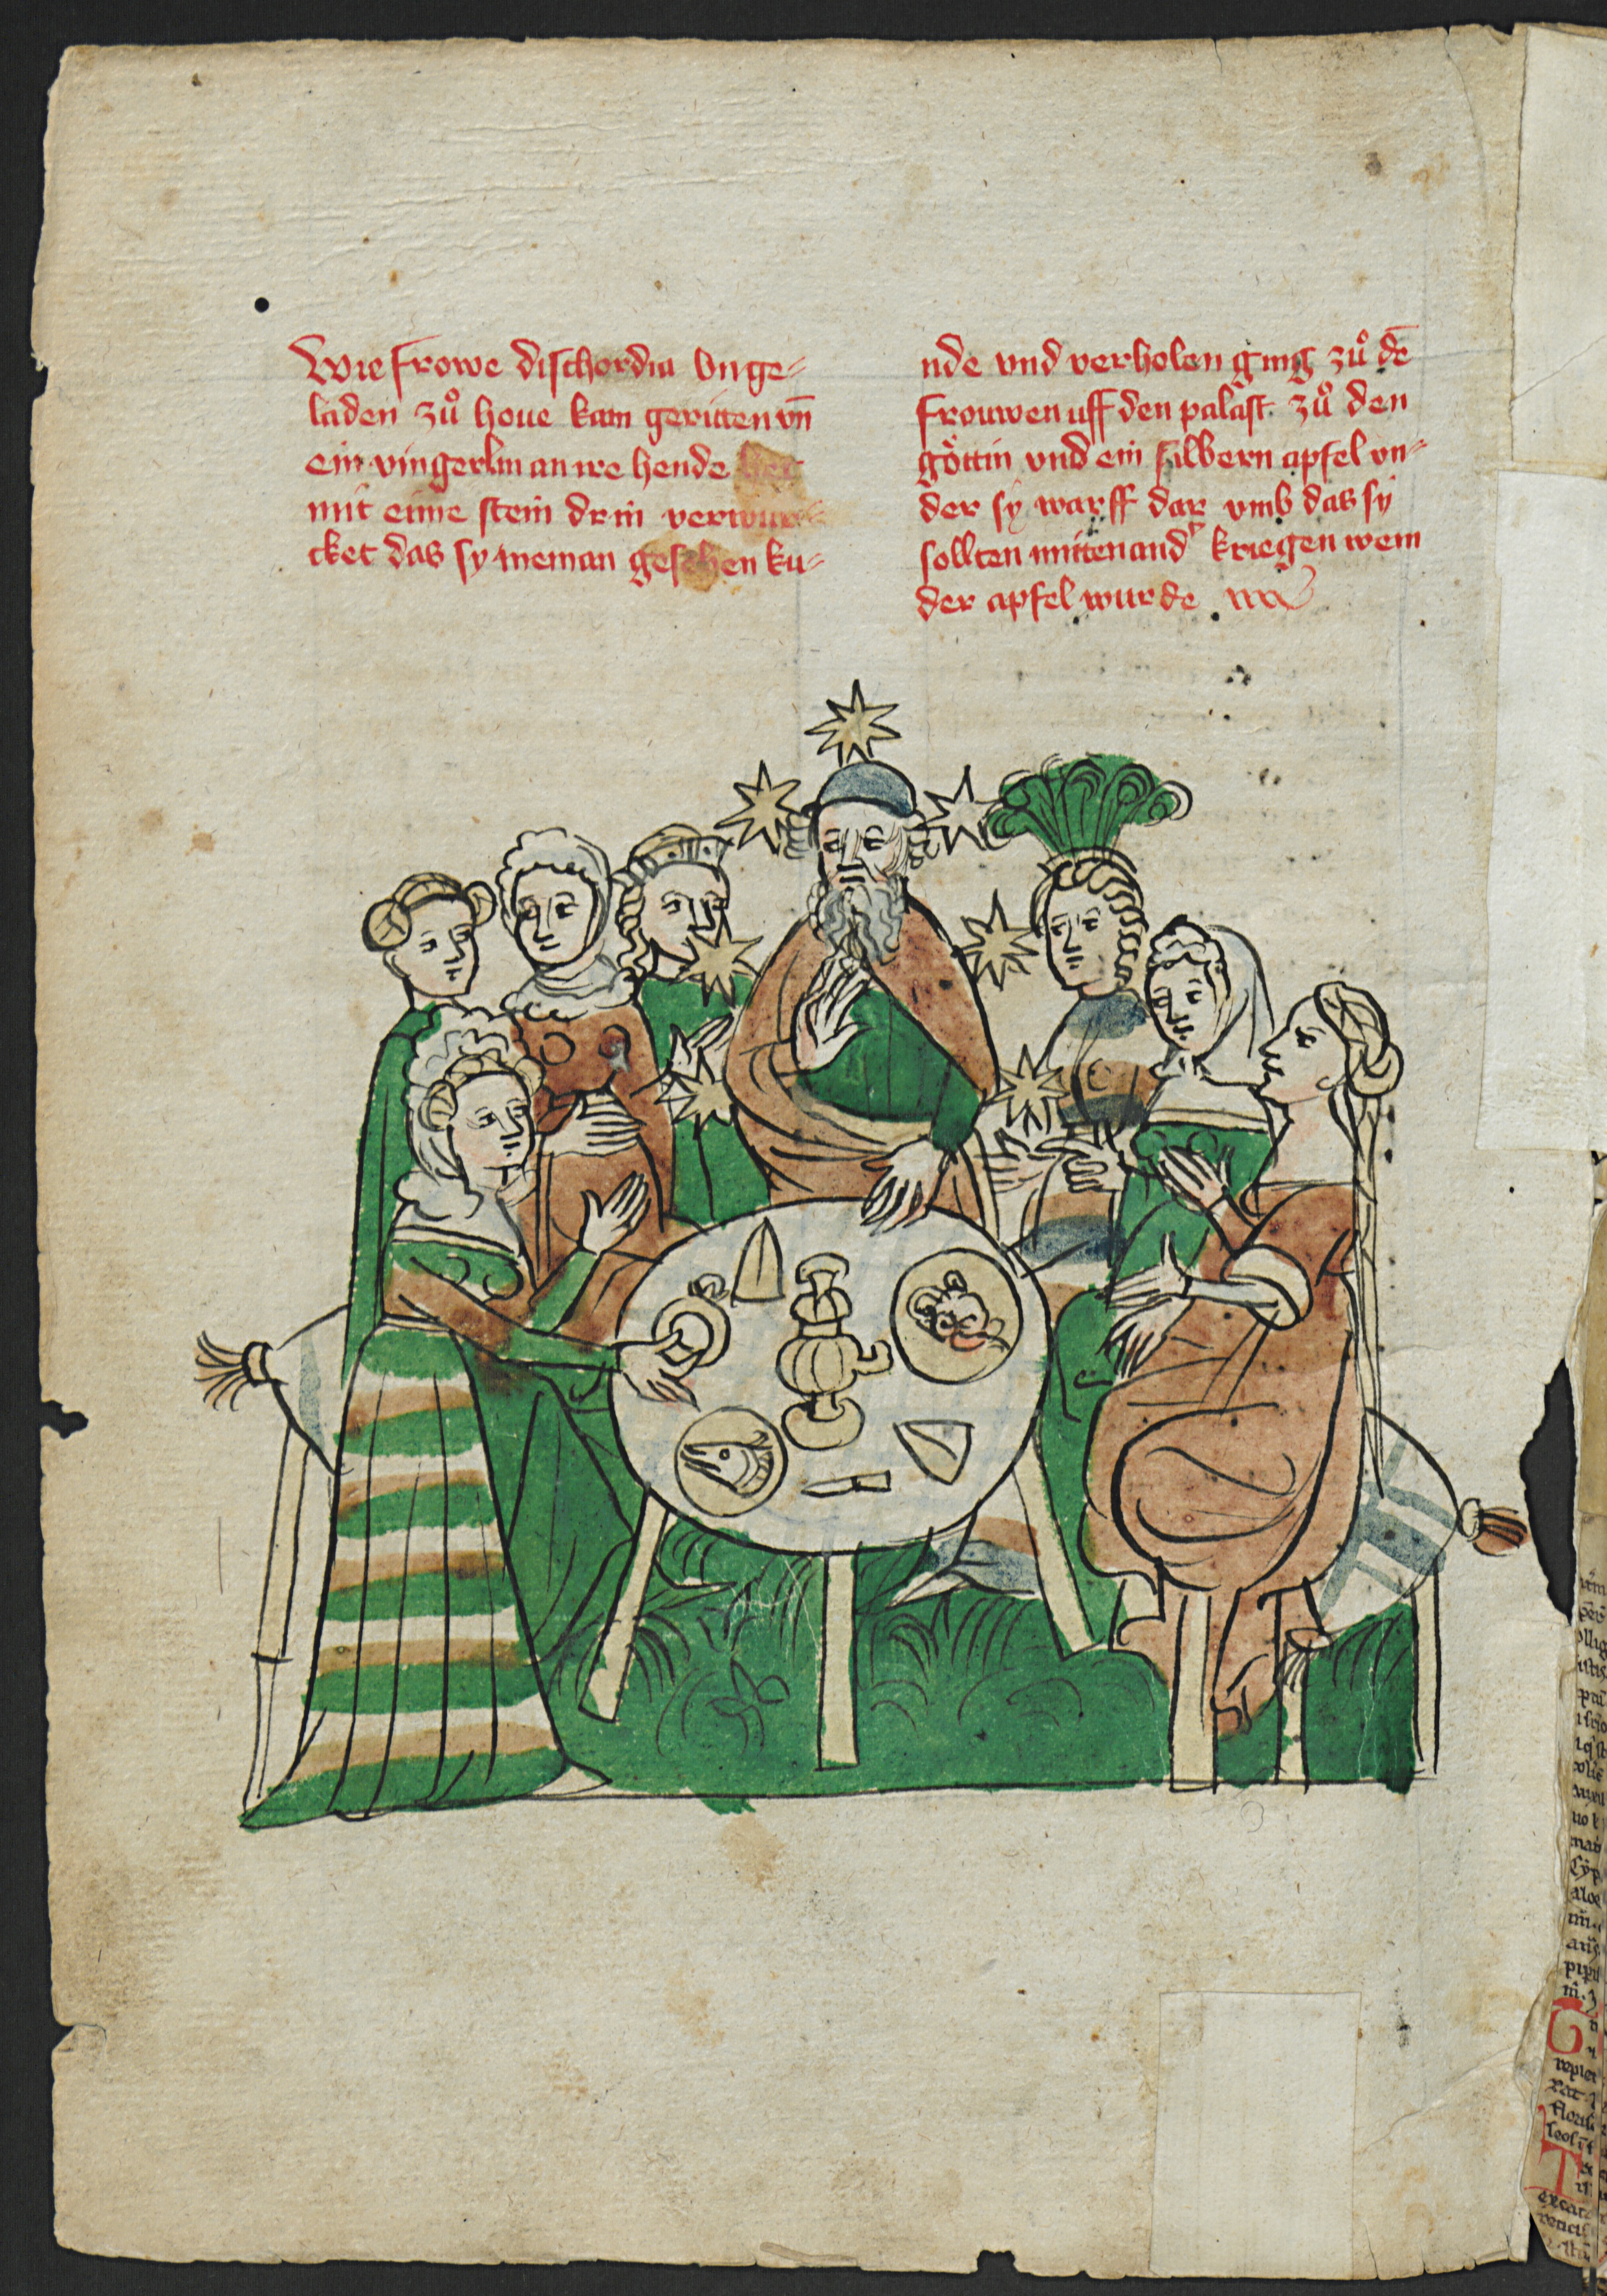 Wie frowe dischordia vnge-
laden zuͦ houe kam geritten vn̄
ein vingerlin an ire hende het
mit eime stein drin verwur-
cket das sy nieman gesehen ku-
nde vnd verholen ging zuͦ dē
frouwen uff den palast zuͦ den
goͤttin vnd ein silbern apfel vn-
der sy warff dar vmb das sy
sollten mittenandʼ kriegen wem
der apfel wurde